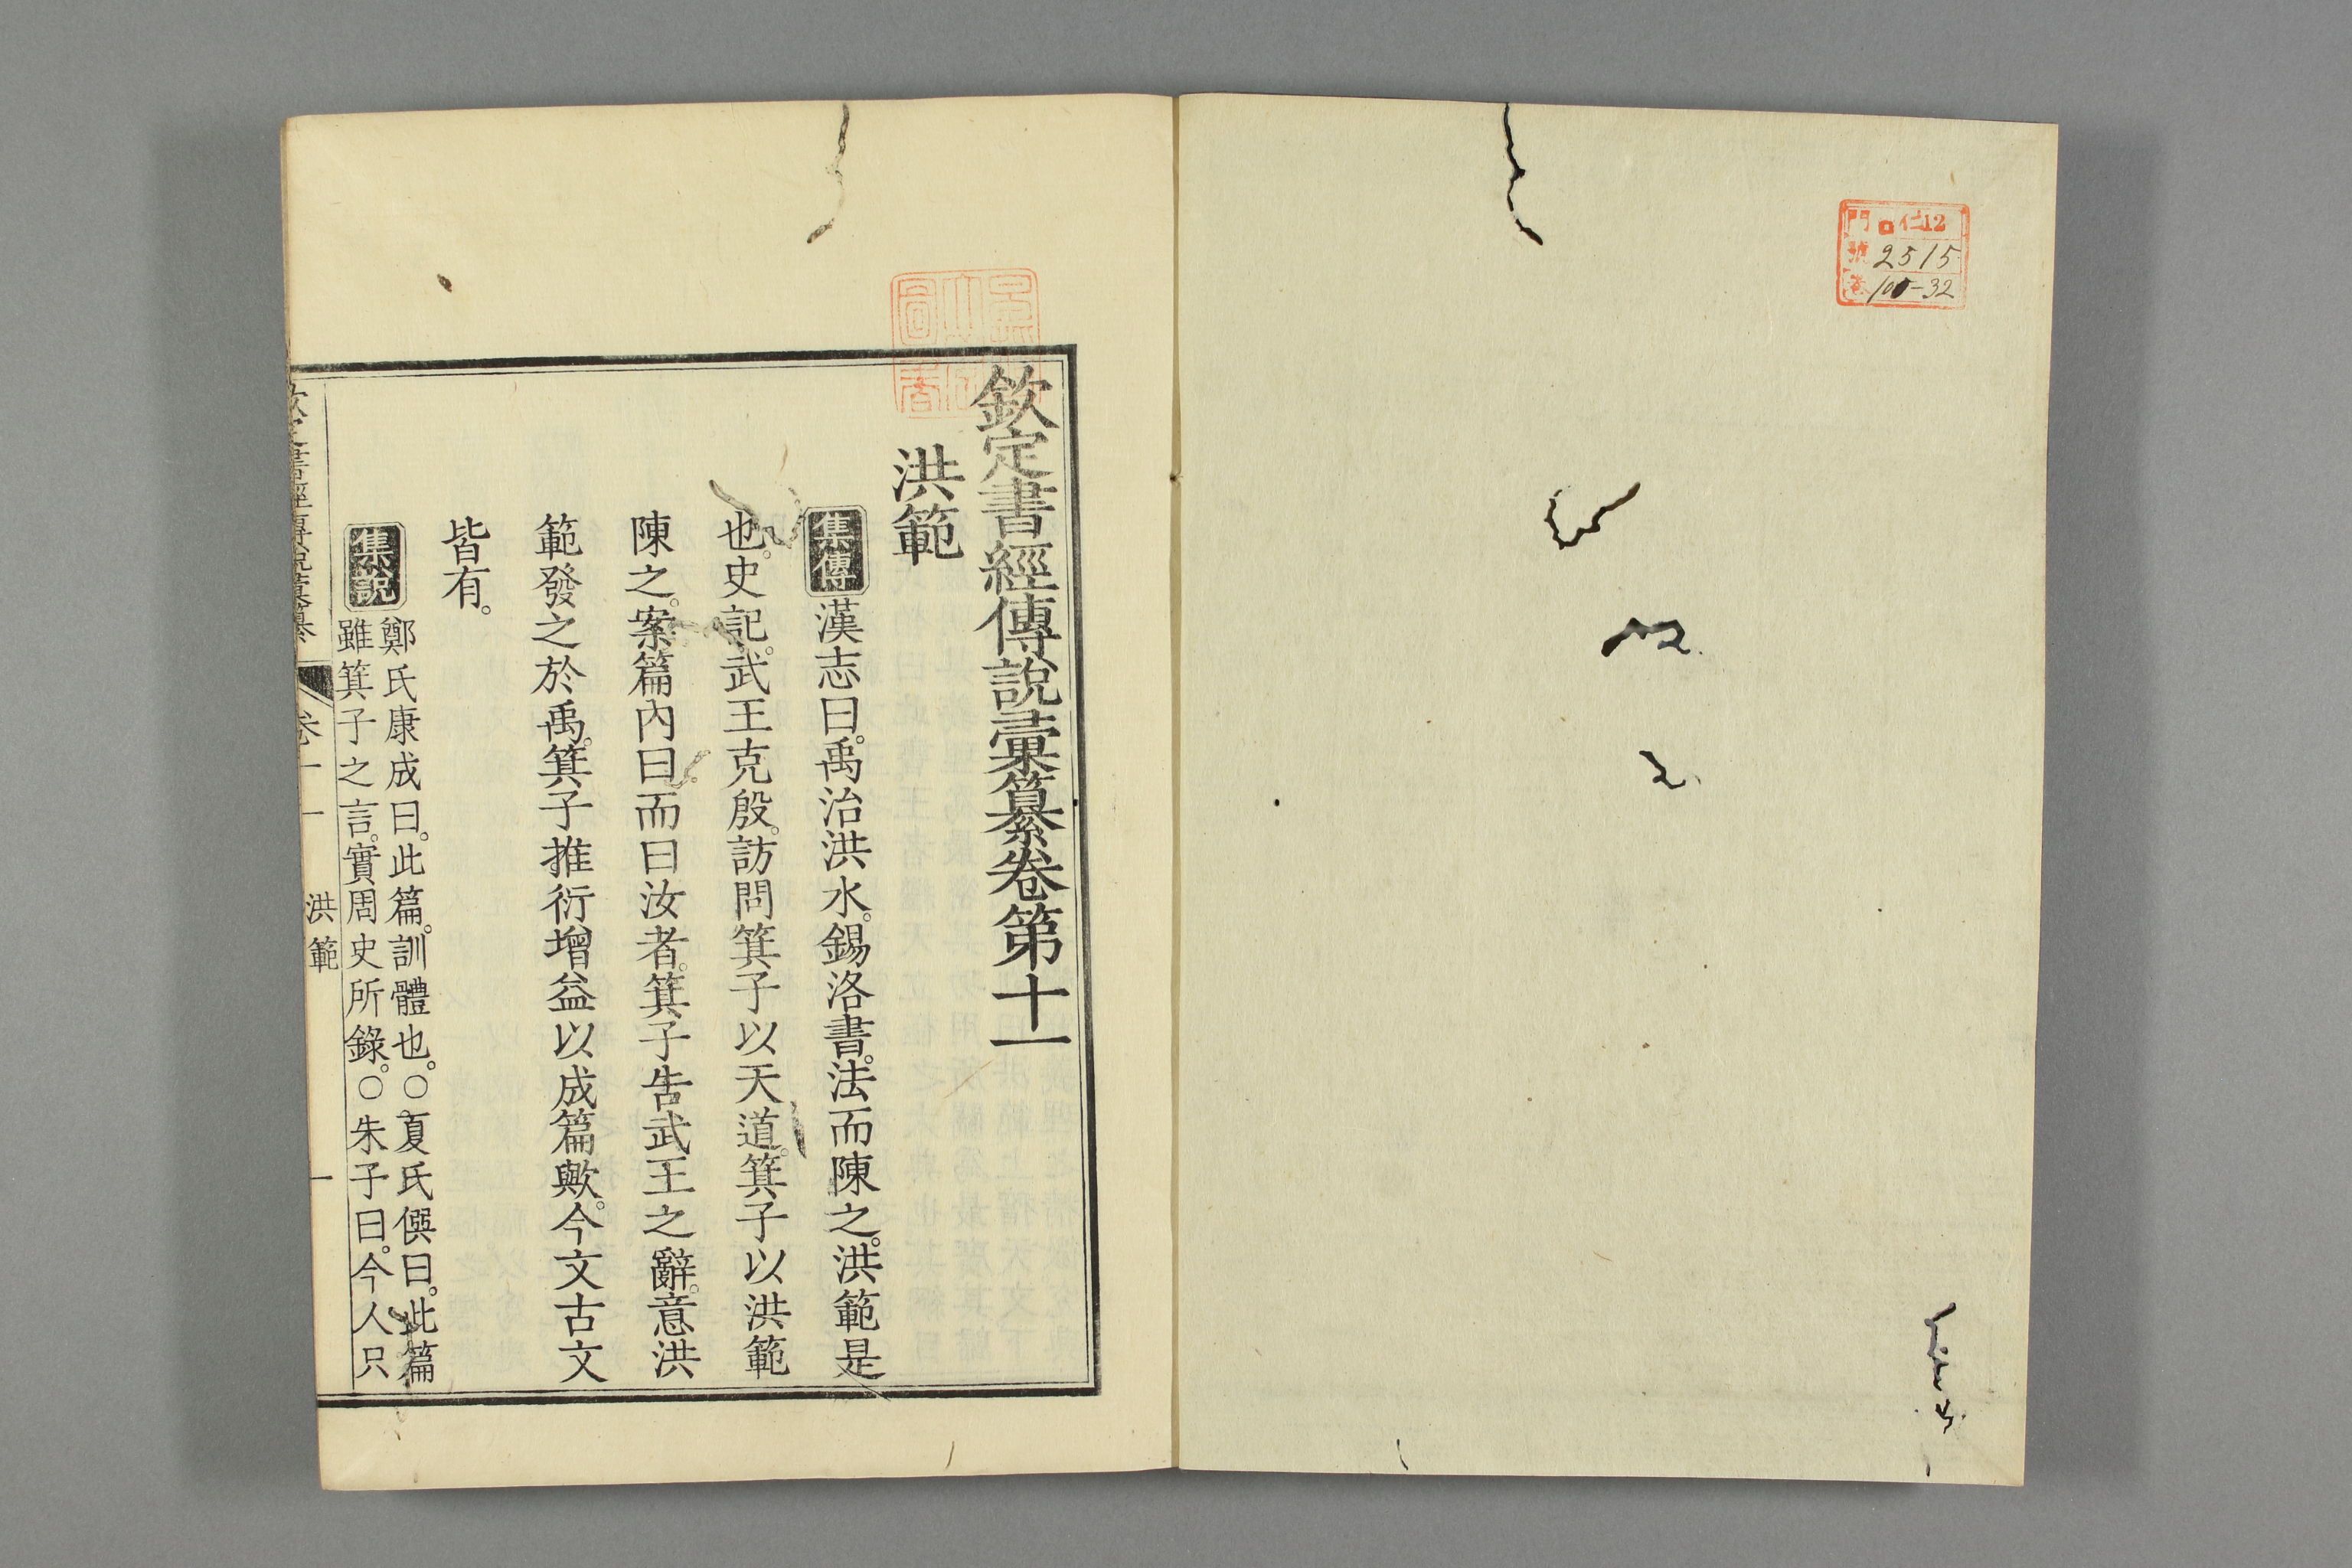 門 仁12
號 2515
卷 100-32
欽定書經傳說彙纂卷第十一
洪範
集傳 漢志曰。禹治洪水。錫洛書。法而陳之。洪範是
也。史記。武王克殷。訪問箕子以天道。箕子以洪範
陳之。案篇內曰。而曰汝者。箕子告武王之辭。意洪
範發之於禹。箕子推衍增益以成篇歟。今文古文
皆有。
集說 鄭氏康成曰。此篇。訓體也。○夏氏僎曰。此篇
雖箕子之言。實周史所錄。○朱子曰。今人只
欽定書經傳說彙纂 卷十一 洪範 一